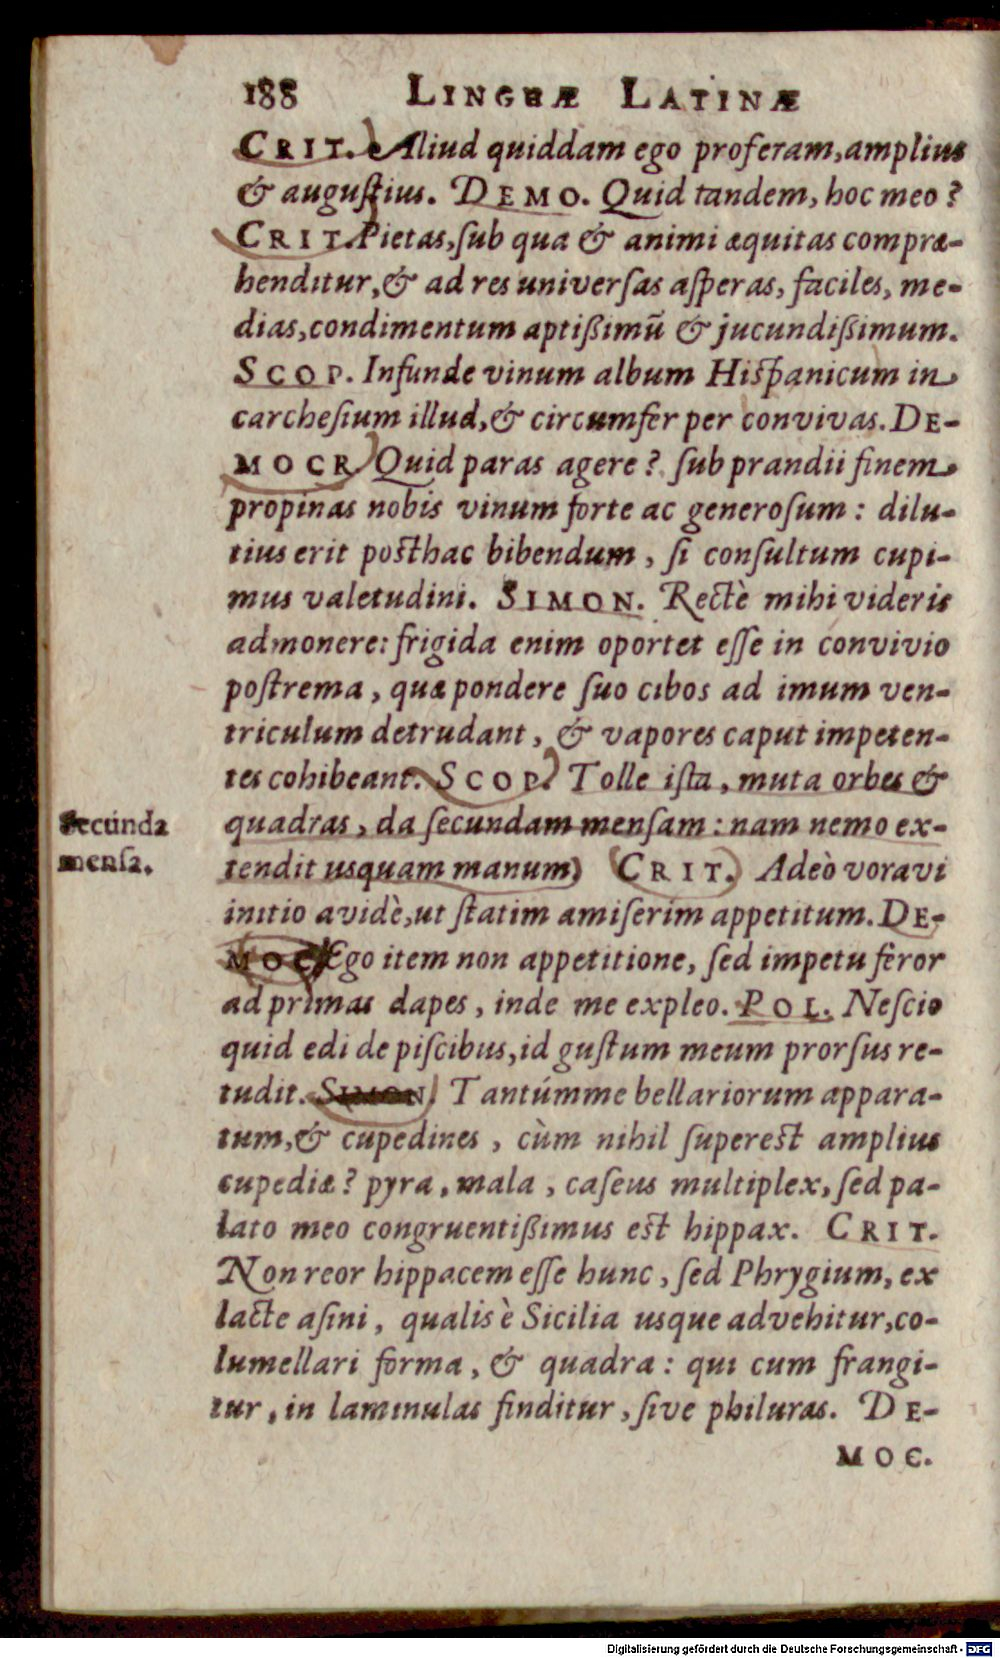 188 LINGUÆ LATINÆ
CRIT. Aliud quiddam ego proferam, amplius
& augustius. DEMO. Quid tandem, hoc meo?
CRIT. Pietas, ſub qua & animi æquitas compræ-
henditur, & ad res univerſas aſperas, faciles, me-
dias, condimentum aptißimũ & jucundißimum.
SCOP. Infunde vinum album Hiſpanicum in
carcheſium illud, & circumfer per convivas. DE-
MOCR. Quid paras agere? ſub prandii finem
propinas nobis vinum forte ac generoſum: dilu-
tius erit poſthac bibendum, ſi conſultum cupi-
mus valetudini. SIMON. Rectè mihi videris
admonere: frigida enim oportet eſſe in convivio
poſtrema, quæ pondere ſuo cibos ad imum ven-
triculum detrudant, & vapores caput impeten-
tes cohibeant. SCOP. Tolle iſta, muta orbes &
Secunda
menſa.
quadras, da ſecundam menſam: nam nemo ex-
tendit usquam manum) CRIT. Adeò voravi
initio avidè, ut ſtatim amiſerim appetitum. DE-
MOC. Ego item non appetitione, ſed impetu feror
ad primas dapes, inde me expleo. POL. Neſcio
quid edi de piſcibus, id guſtum meum prorſus re-
tudit. SIMON. Tantúmme bellariorum appara-
tum, & cupedines, cùm nihil ſupereſt amplius
cupediæ? pyra, mala, caſeus multiplex, ſed pa-
lato meo congruentißimus eſt hippax. CRIT.
Non reor hippacem eſſe hunc, ſed Phrygium, ex
lacte aſini, qualis è Sicilia usque advehitur, co-
lumellari forma, & quadra: qui cum frangi-
tur, in laminulas finditur, ſive philuras. DE-
MOC.
Digitalisierung gefördert durch die Deutsche Forschungsgemeinschaft - DFG